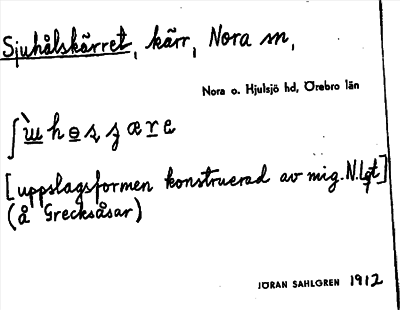 Sjuhålskärret, kärr, Nora sn,
Nora o. Hjulsjö hd, Örebro län
[uppslagsformen konstruerad av mig. N.Lgt]
(å Grecksåsar)
JÖRAN SAHLGREN 1912